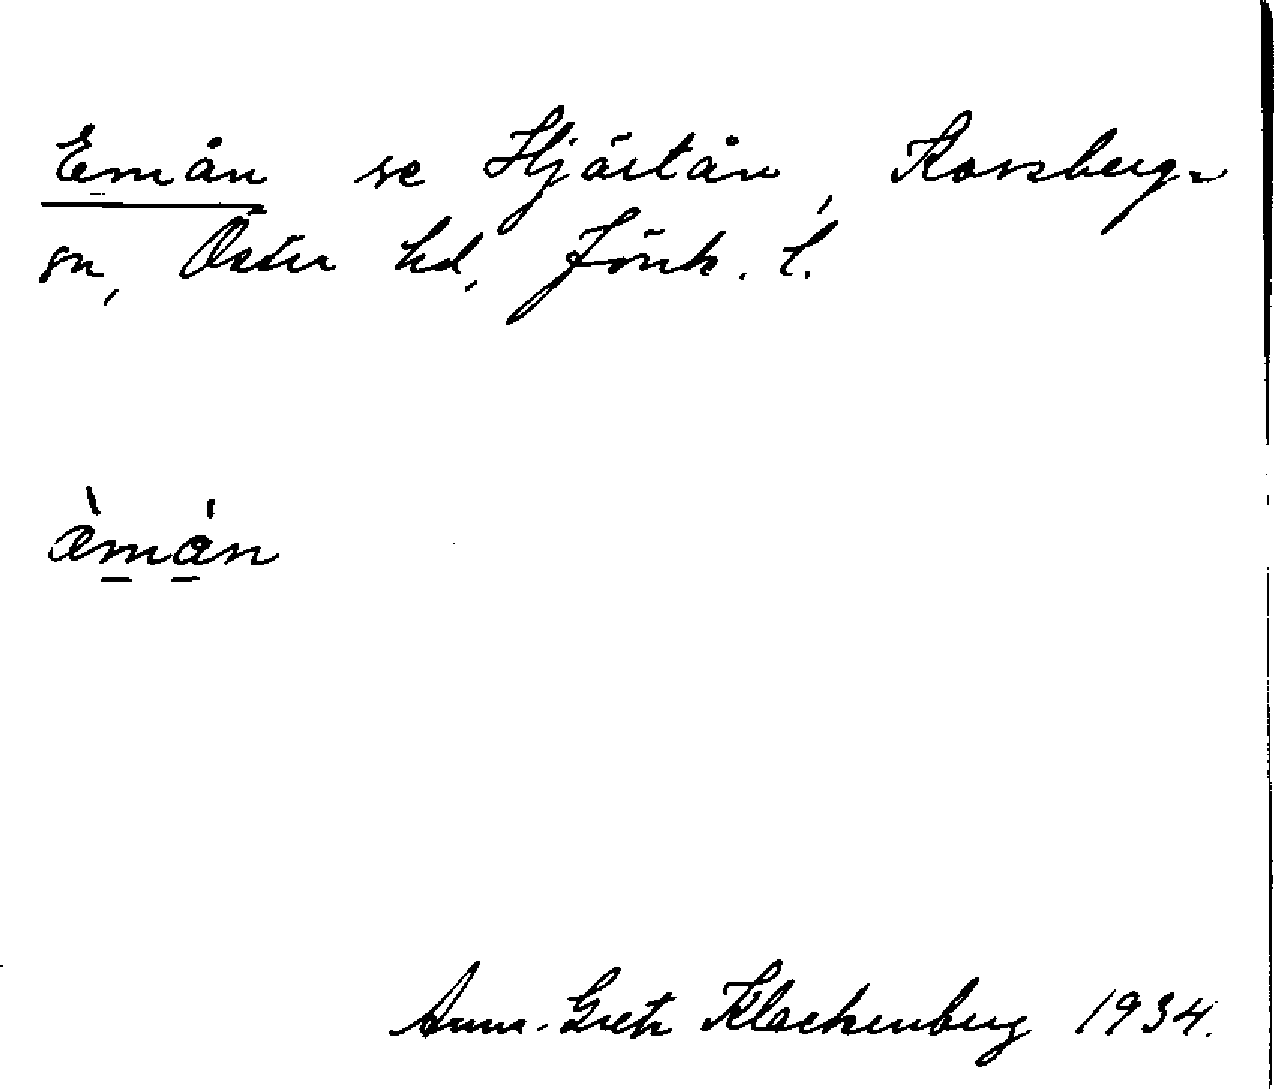 Emån se Hjärtån, Korsberga
sn, Östra hd, Jönk. l.
æ̀mán
Anna-Greta Klackenberg 1934.